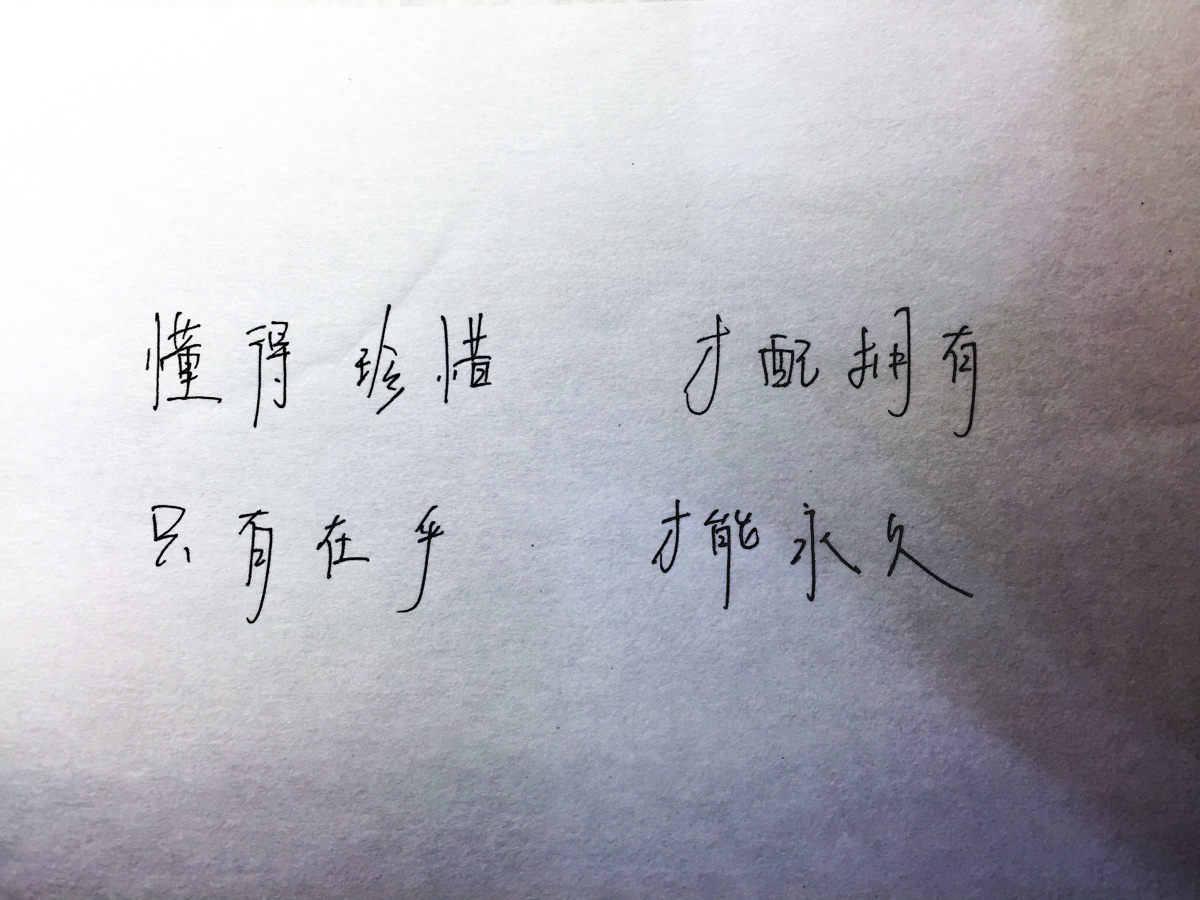 懂得珍惜 才配拥有
只有在乎 才能永久